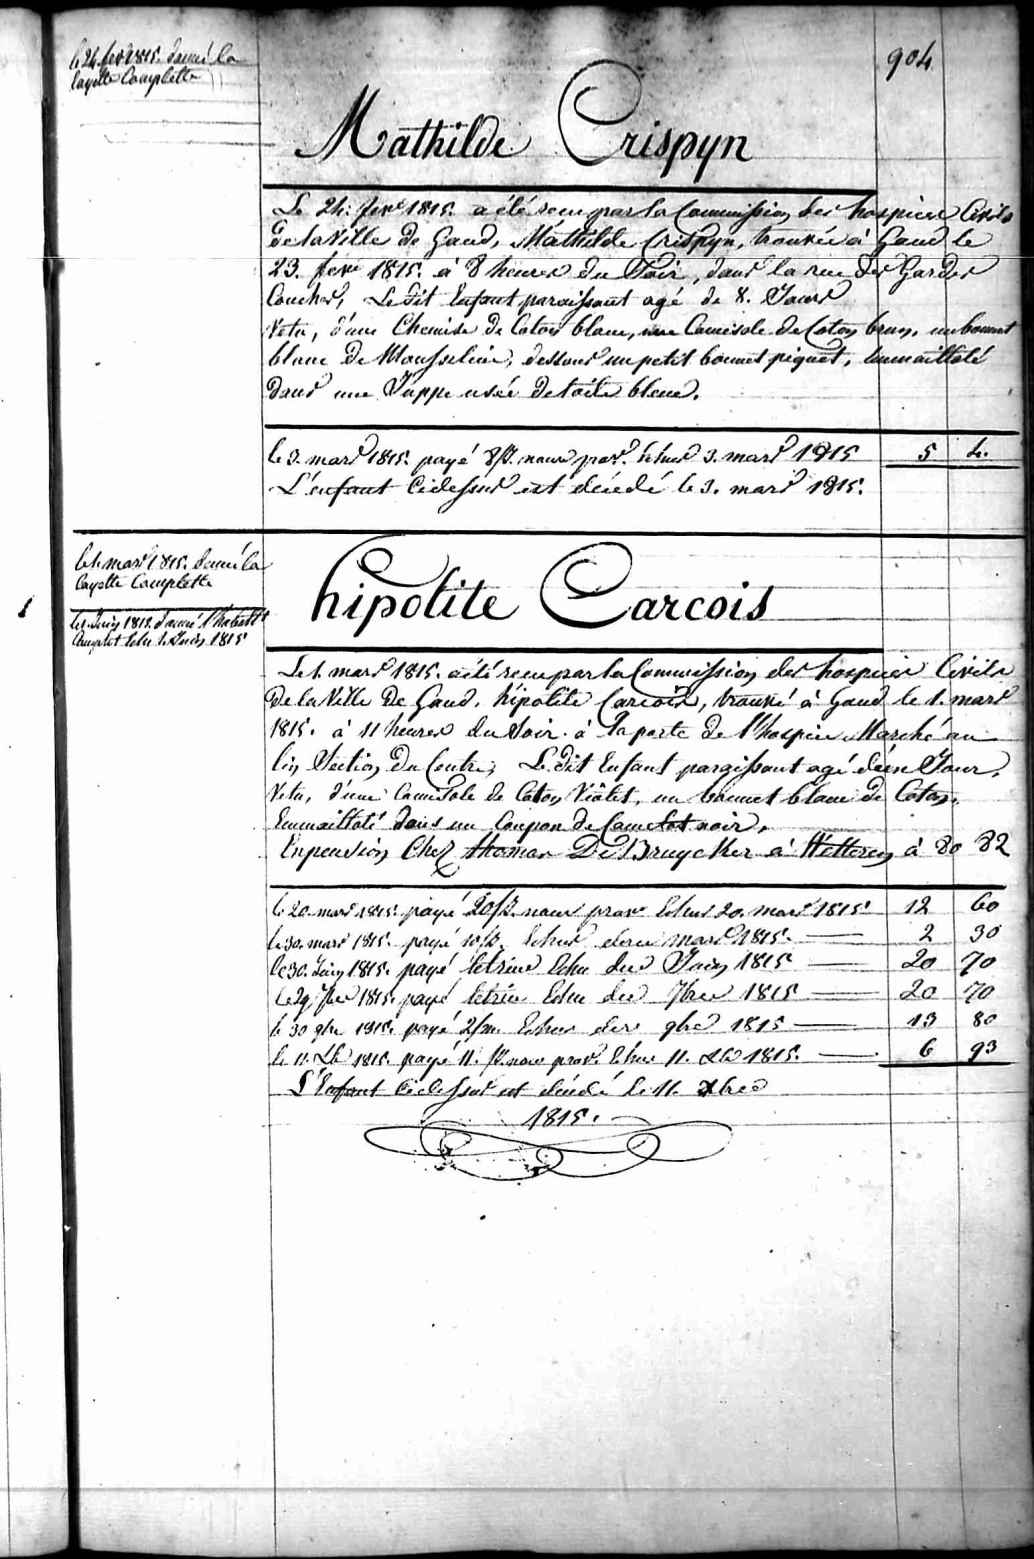 904
le 24. fevr 1815. donné la
layette Complette
Mathilde Crispyn
Le 24. fevr 1815. a été recu par la Commission des hospices Civils
de la Ville de Gand, Mathilde Crispyn, trouvée à Gand le
23. fevr 1815. à 8 heures du Soir, dans la rue des Gardes
Couches, Le dit Enfant paroissant agé de 8. Jours
Vetu, d'une Chemise de Coton blanc, une Camisole de Coton brun, un bonnet
blanc de Mousseline, dessous un petit bonnet piquet, Emmailloté
dans une Juppe usée de toile bleue.
le 3. mars 1815. payé nour prov. Echus 3. mars 1815 5 4.
L'enfant Cidessus est décédé le 3. mars 1815.
le 1. mars 1815. donné la
layette Complette
le 1. Juin 1815. donné
Complet Echu 1. Juin 1815
hipolite Carcois
Le 1. mars 1815. a été recu par la Commission des hospices Civils
de la Ville de Gand, hipolite Carcois, trouvé à Gand le 1. mars
1815. à 11 heures du Soir. à la porte de l'hospice Marché au
lin Section du Centre, Le dit Enfant paroissant agé d'un Jour,
Vetu, d'une Camisole de Coton Violet, un bonnet blanc de Coton,
Emmailloté dans un Coupon de Camelot noir,
Enpension Chez thomas De Bruycker à Wetteren à 80 82
le 20. mars 1815. payé nour prov Echus 20. mars 1815 12 60
le 30. mars 1815. payé Echus mars 1815. 2 30
le 30. Juin 1815. payé letrim Echu Juin 1815 20 70
le 29 7bre 1815. payé letrim Echu 7bre 1815 20 70
le 30 9bre 1815. payé Echus 9bre 1815 13 80
le 11. Xbre 1815. payé 11. nour prov. Echus 11. Xbre 1815. 6 93
L'Enfant Cidessus est décédé le 11. Xbre
1815.